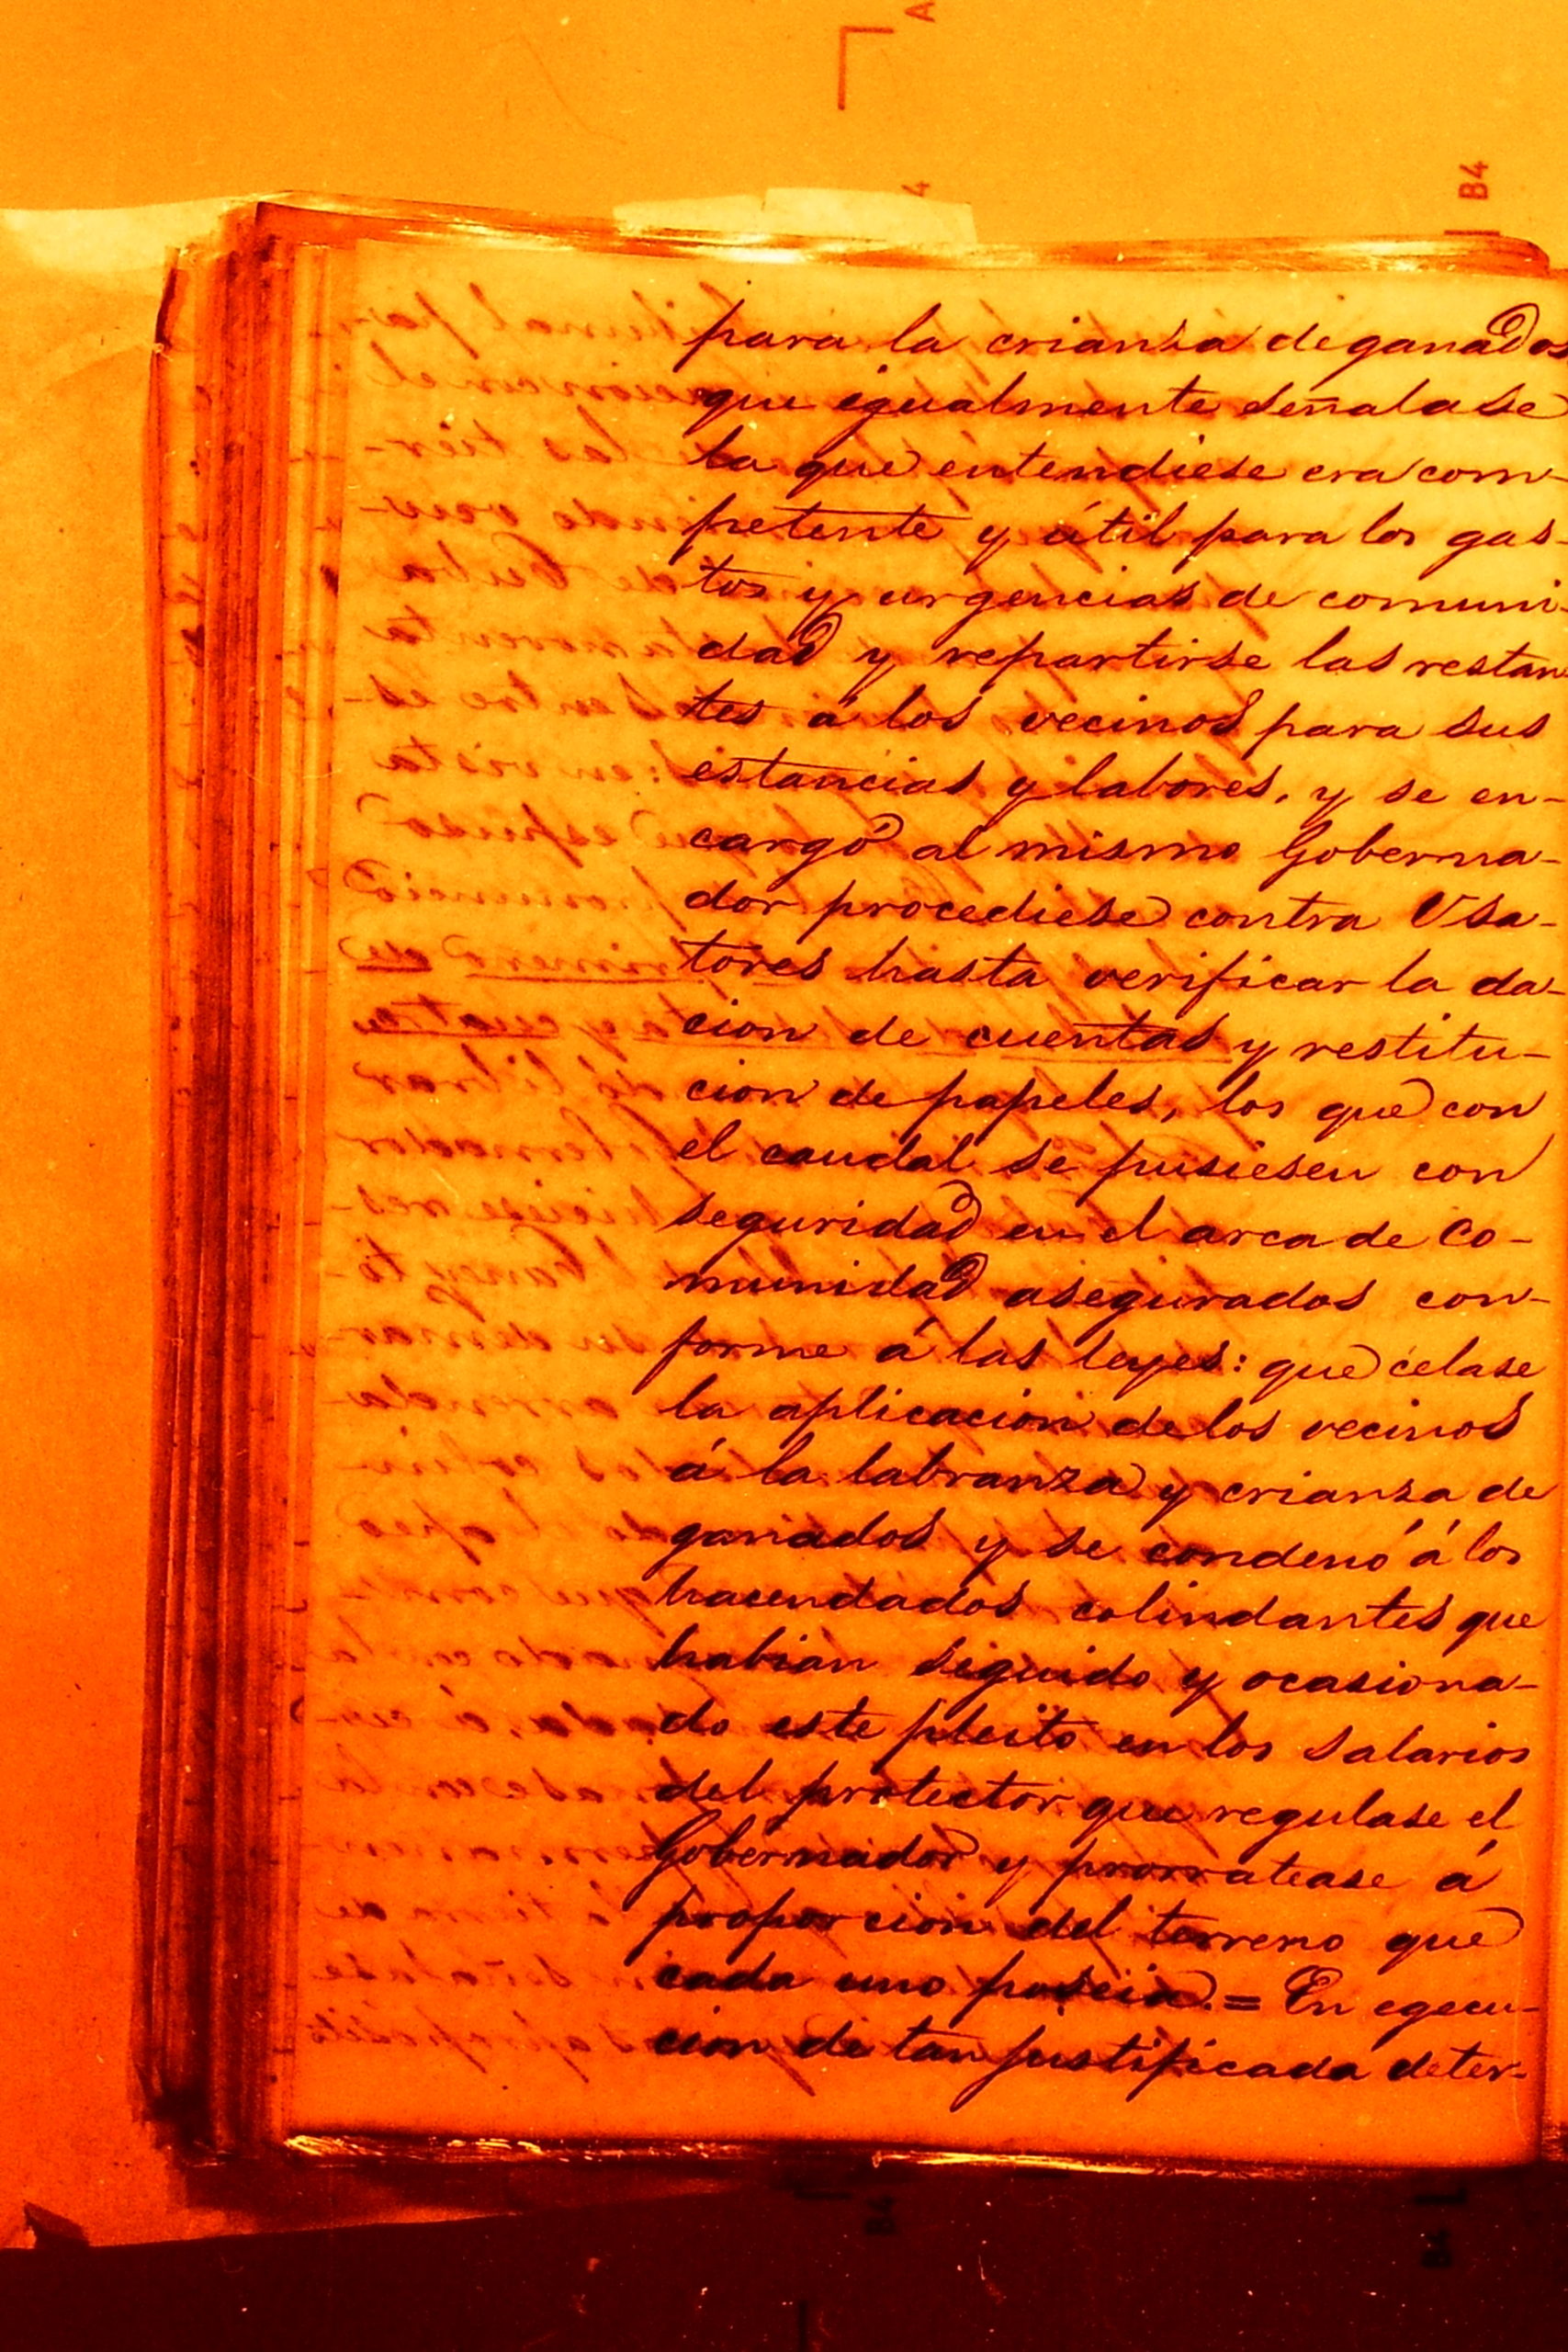 A
4
B4
para la crianza de ganados
que igualmente señalase
la que entendiese era com-
petente y útil para los gas-
tos y urgencias de comuni-
dad y repartirse las restan
tes á los vecinos para sus
estancias y labores, y se en-
cargó al mismo Goberna-
dor procediese contra Usa-
tores hasta verificar la da-
cion de cuentas y restitu-
cion de papeles, los que con
el caudal se pusiesen con
seguridad en el arca de Co-
munidad asegurados con-
forme á las leyes: que celase
la aplicacion de los vecinos
á la labranza y crianza de
ganados y se condenó á los
hacendados colindantes que
habian seguido y ocasiona-
do este pleito en los salarios
del protector que regulase el
Gobernador y prorratease á
proporcion del terreno que
cada uno poseia. = En egecu-
cion de tan justificada deter-
B4
B4